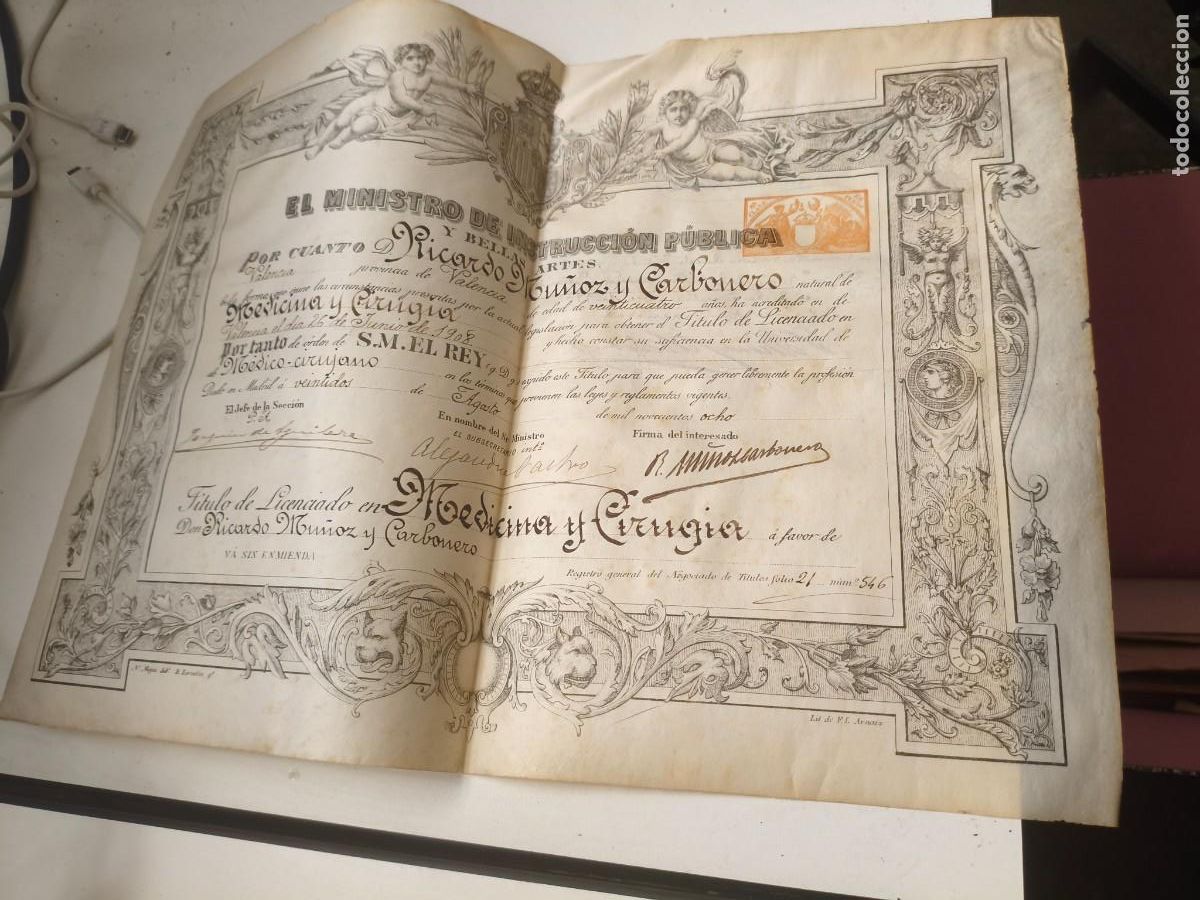 EL MINISTRO DE INSTRUCCIÓN PÚBLICA
Y BELLAS ARTES.
POR CUANTO D. Ricardo Muñoz y Carbonero natural de
Valencia provincia de Valencia de edad de veinticuatro años, ha acreditado en de-
bida forma que tiene las circunstancias prescritas por la actual legislación para obtener el Título de Licenciado en
Medicina y Cirugia y hecho constar su suficiencia en la Universidad de
Valencia el dia 26 de Junio de 1908
Por tanto de orden de S.M. EL REY, q. D. g. expido este Título para que pueda ejercer libremente la profesión
de Médico-cirujano en los términos que previenen las leyes y reglamentos vigentes.
Dado en Madrid á veintidos de Agosto de mil novecientos ocho
El Jefe de la Sección
P. A.
Joaquin de Aguilera
En nombre del Sr. Ministro
EL SUBSECRETARIO intº
Alejandro Castro
Firma del interesado
R. Muñoz Carbonero
Título de Licenciado en Medicina y Cirugia á favor de
Don Ricardo Muñoz y Carbonero
VÁ SIN ENMIENDA
Registro general del Negociado de Títulos folio 21 núm.º 546
Lit. de F. L. Arnaiz
todocoleccion